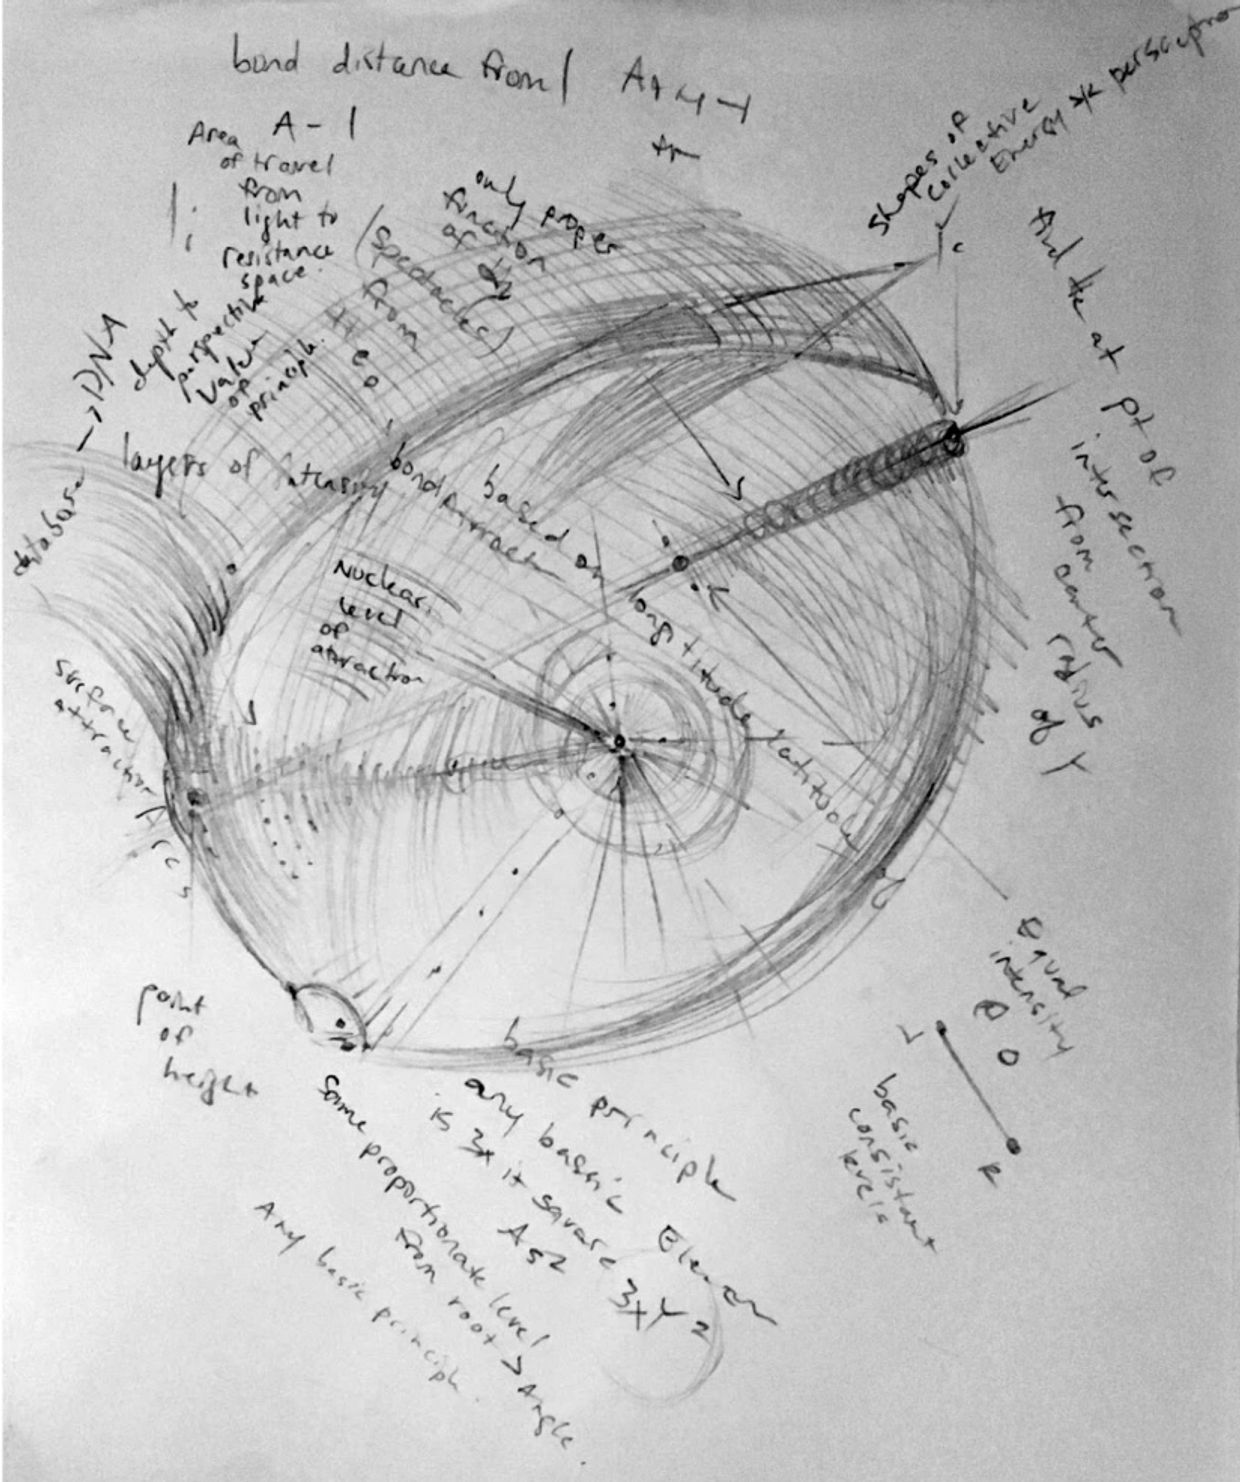 bond distance from /
A - 1
Area
of travel
from
light to
resistance
space.
depth to
perspective
value
of
principle.
only proper
function
of
(spectacles)
from
shapes of
collective
Energy
at pt of
intersection
from center
radius
of Y
database → DNA
layers of intensity
bond Attract
based on
longitude latitude
Nuclear
level
of
attraction
surface
attraction
Arcs
point
of
height
Equal
intensity
basic
consistant
levels
R
basic principle
any bassic
is 3x it square
3xY2
same proportionate level
from root > Angle.
Any basic principle.